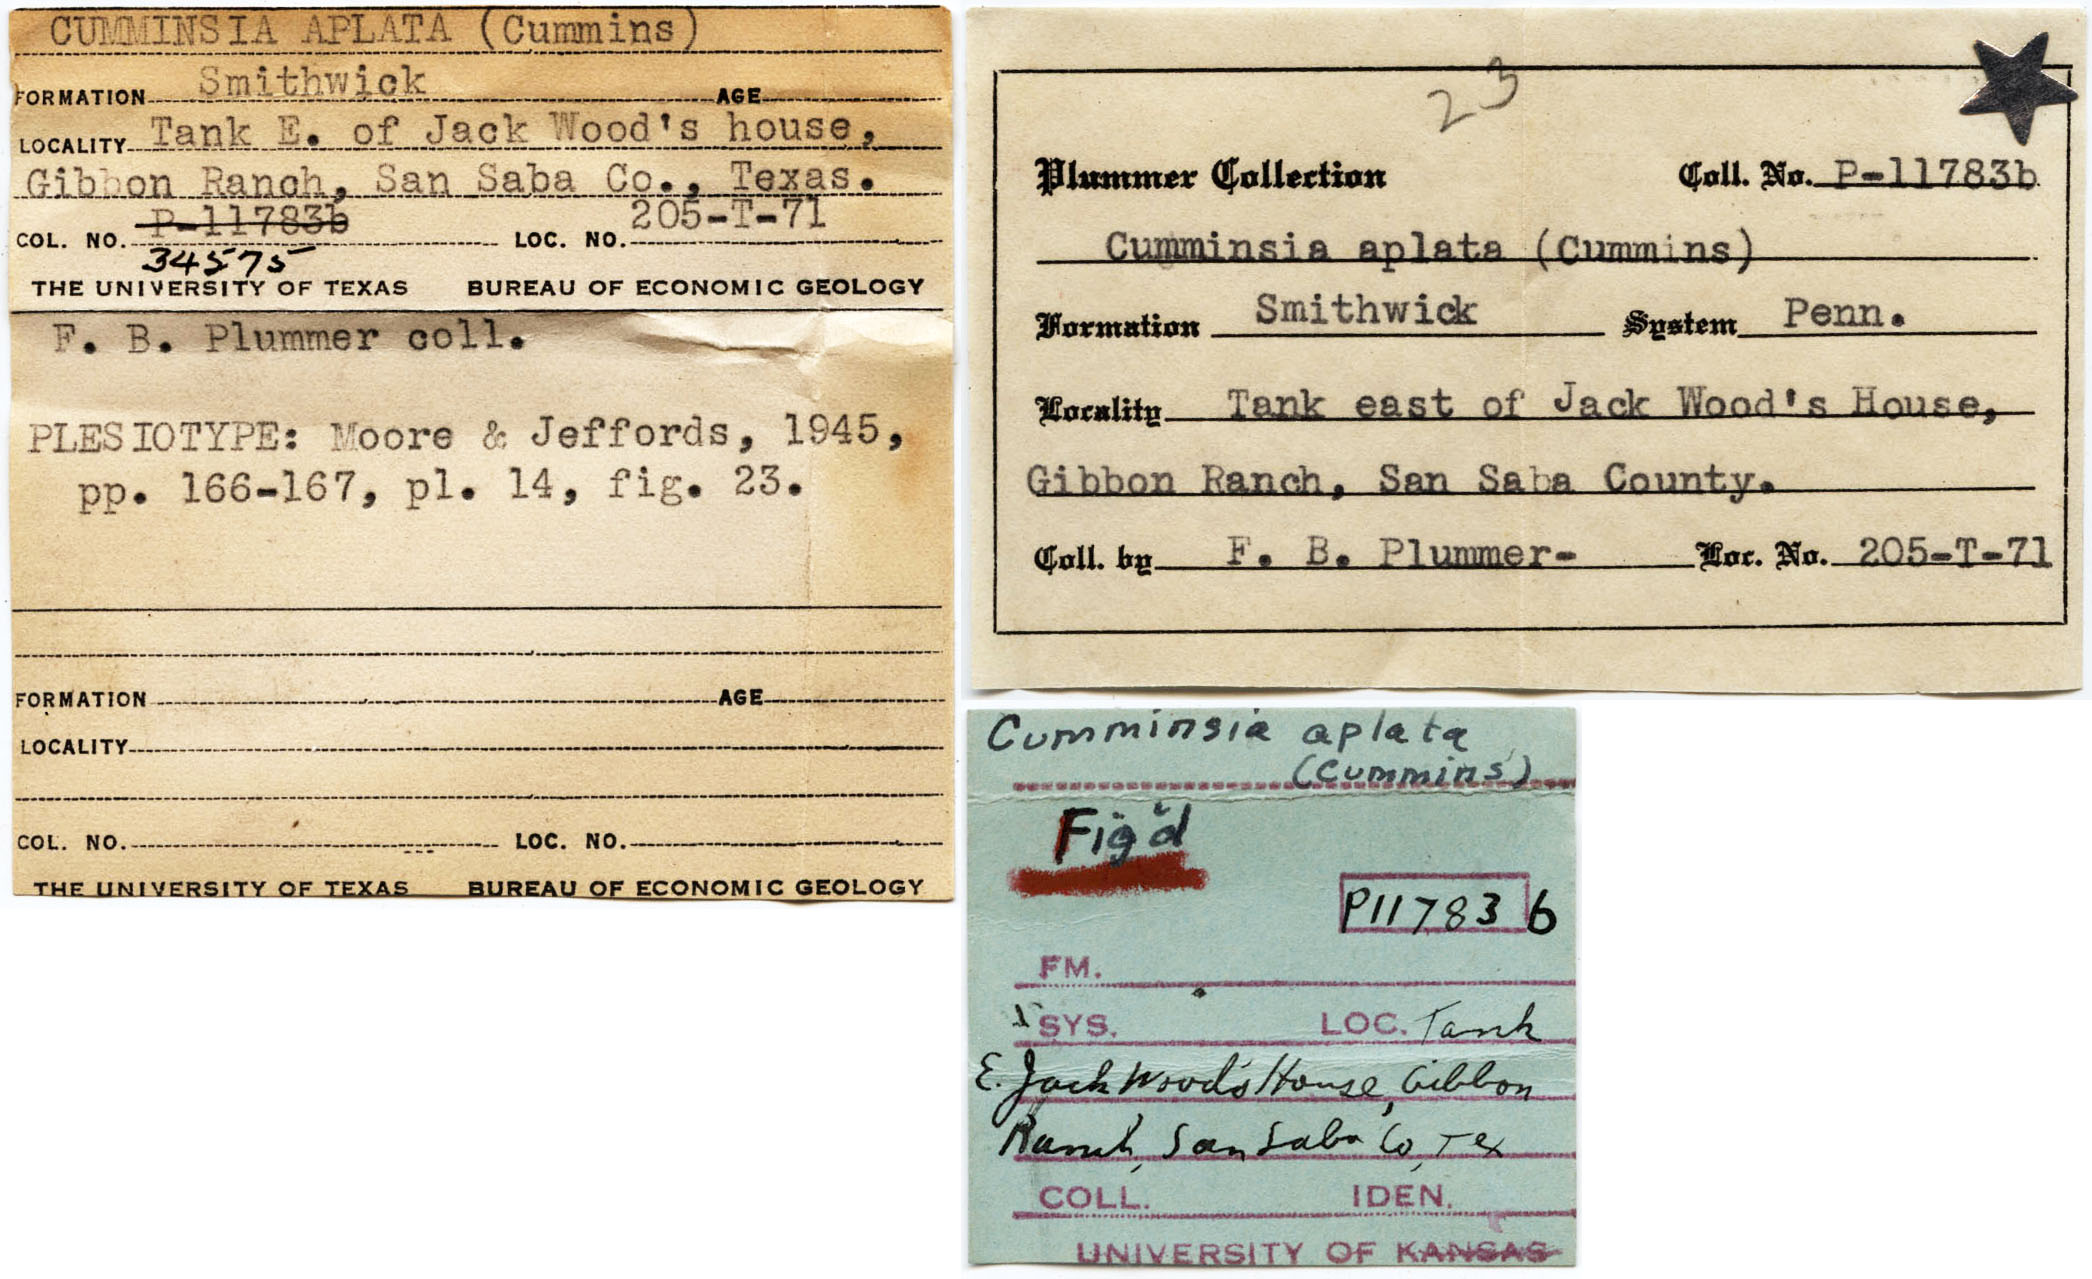 CUMMINSIA APLATA (Cummins)
FORMATION Smithwick AGE
LOCALITY Tank E. of Jack Wood's house,
Gibbon Ranch, San Saba Co., Texas.
COL. NO. P-11783b LOC. NO. 205-T-71
34575
THE UNIVERSITY OF TEXAS BUREAU OF ECONOMIC GEOLOGY
F. B. Plummer coll.
PLESIOTYPE: Moore & Jeffords, 1945,
pp. 166-167, pl. 14, fig. 23.
FORMATION AGE
LOCALITY
COL. NO. LOC. NO.
THE UNIVERSITY OF TEXAS BUREAU OF ECONOMIC GEOLOGY
23
Plummer Collection Coll. No. P-11783b
Cumminsia aplata (Cummins)
Formation Smithwick System Penn.
Locality Tank east of Jack Wood's House,
Gibbon Ranch, San Saba County.
Coll. by F. B. Plummer- Loc. No. 205-T-71
Cumminsia aplata
(Cummins)
Fig'd
P11783b
FM.
SYS. LOC. Tank
E. Jack Wood's House, Gibbon
Ranch, San Saba Co, Tex
COLL. IDEN.
UNIVERSITY OF KANSAS